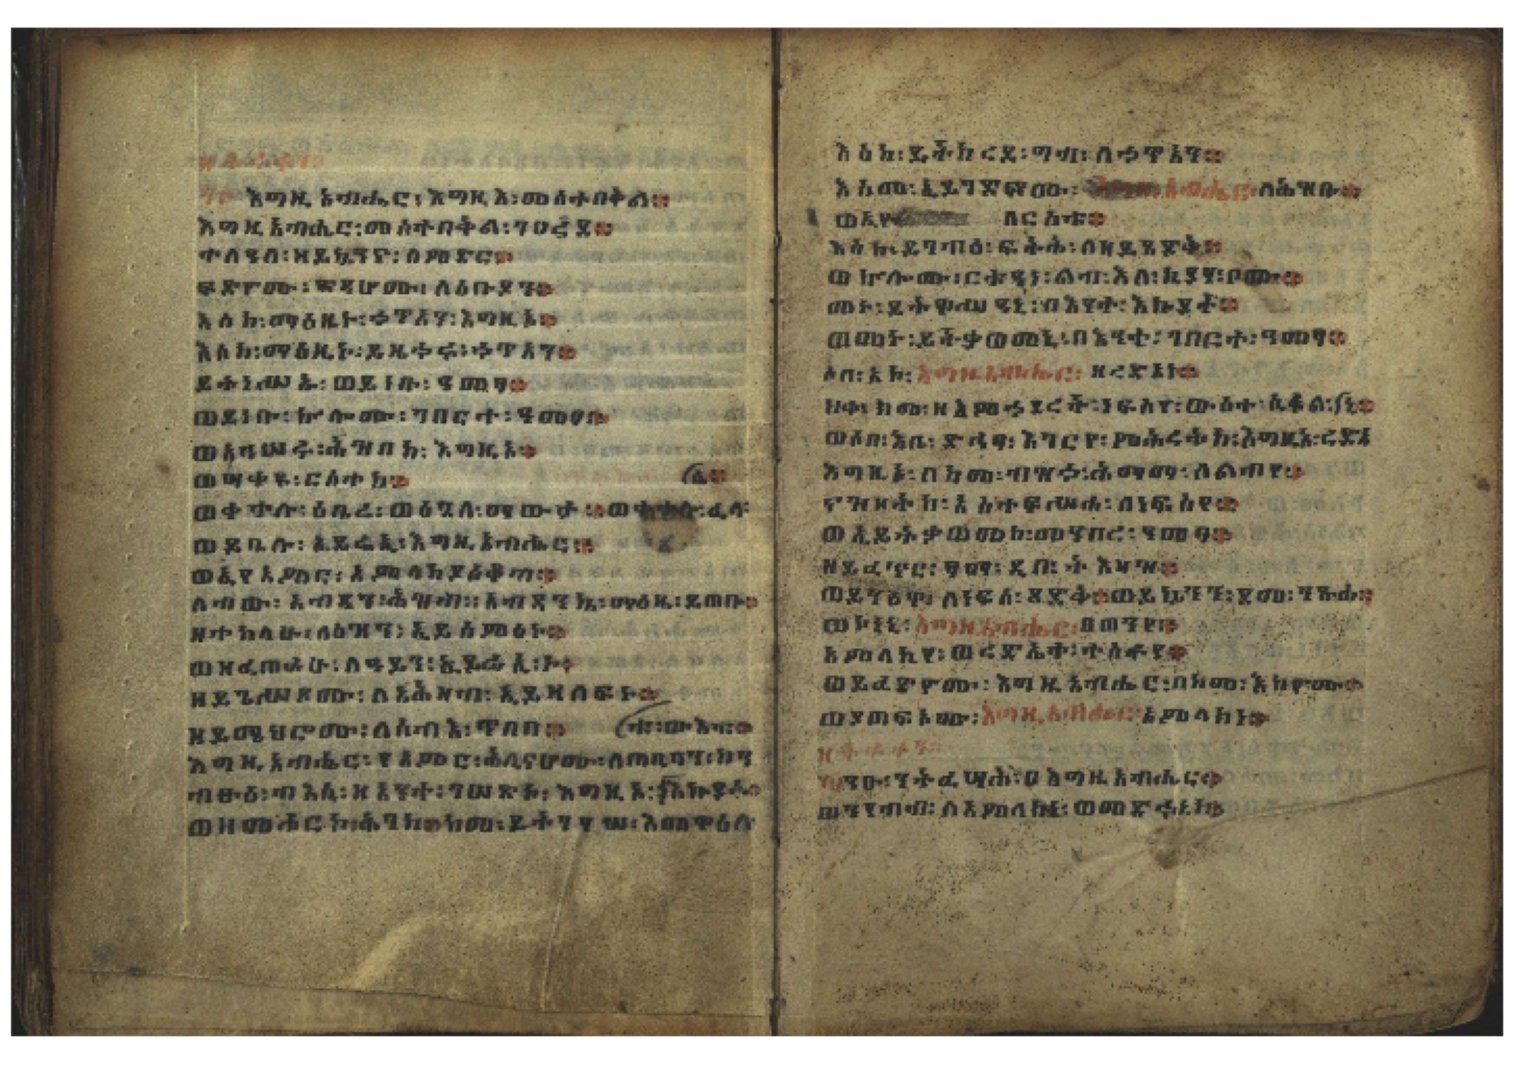 እግዚአብሔር፡ እግዚእ፡ መስተበቅል።
እግዚአብሔር፡ መስተበቅል፡ ገሀደ።
ተለዓለ፡ ዘይኴንኖ፡ ለምድር።
ፍድዮሙ፡ ፍዳሆሙ፡ ለዕቡያን።
እስከ፡ ማዕዜኑ፡ ኃጥአን፡ እግዚኦ።
እስከ፡ ማዕዜኑ፡ ይዜኀሩ፡ ኃጥአን።
ይትነሥኡ፡ ወይነቡ፡ ዓመፃ።
ወይነቡ፡ ኵሎሙ፡ ገበርተ፡ ዓመፃ።
ወአኅሠሩ፡ ሕዝበከ፡ እግዚኦ።
ወሣቀዩ፡ ርስተከ። ሴ።
ወቀተሉ፡ ዕቤረ፡ ወዕጓለ፡ ማውታ። ወቀተሉ፡ ፈላ
ወይቤሉ፡ ኢይሬኢ፡ እግዚአብሔር።
ወኢየአምር፡ አምላከ ያዕቆብ።
ለብው፡ አብዳን፡ ሕዝብ፡ አብዳንኬ፡ ማዕዜ፡ ይጠብቡ።
ዘተከላሁ፡ ለዕዝን፡ ኢይሰምዕኑ።
ወዘፈጠራሁ፡ ለዓይን፡ ኢይሬኢኑ።
ዘይጌሠጾሙ፡ ለአሕዛብ፡ ኢይዛለፍኑ።
ዘይሜህሮሙ፡ ለሰብእ፡ ጥበበ። ቱ፡ ውእቱ።
እግዚአብሔር፡ የአምር፡ ሕሊናሆሙ፡ ለጠቢባን፡ ከን
ብፁዕ፡ ብእሲ፡ ዘአንተ፡ ገሠጽኮ፡ እግዚኦ፡ እኩያት።
ወዘመሐርኮ፡ ሕገከ። ከመ፡ ይትገኀሥ፡ እመዋዕለ
እስከ፡ ይትከረይ፡ ግብ፡ ለኃጥእን።
እስመ፡ ኢይገድፎሙ፡ እግዚአብሔር፡ ለሕዝቡ።
ለርስቱ።
እስከ፡ ይገብዕ፡ ፍትሕ፡ ለዘይጸድቅ።
ወኵሎሙ፡ ርቱዓነ፡ ልብ፡ እለ፡ ኪያሃ፡
መኑ፡ ይትዋሥዓኒ፡ በእንተ፡ እኩያት።
ወመኑ፡ ይትቃወመኒ፡ በእንተ፡ ገበርተ፡ ዓመፃ።
ሶበ፡ አኮ፡ እግዚአብሔር፡ ዘረድአኒ።
ሕቀ፡ ከመ፡ ዘእምኃደረት፡ ነፍስየ፡ ውስተ፡ ሲኦል፡
ወሶበ፡ እቤ፡ ድኅፃ፡ እገርየ፡ ምሕረትከ፡ እግዚኦ፡ ረድአ
እግዚኦ፡ በከመ፡ ብዝኁ፡ ሕማማ፡ ለልብየ።
ናዝዞትከ፡ አስተፍሥሐ፡ ለነፍስየ።
ወኢይትቃወመከ፡ መንበር፡ ዓመፃ።
ዘይፈጥር፡ ፃማ፡ ዲበ፡ ትእዛዝ።
ወይንዕዋ፡ ለነፍሰ፡ ጻድቅ። ወይኴንኑ፡ ደመ፡ ንጹሐ።
ወኮነኒ፡ እግዚአብሔር፡ ጸወንየ።
አምላኪየ፡ ወረድኤተ፡ ተስፋየ።
ወይፈድዮሙ፡ እግዚአብሔር፡ በከመ፡ እከዮሙ።
ወያጠፍኦሙ፡ እግዚአብሔር፡ አምላክነ።
ንዑ፡ ንትፈሣሕ፡ በእግዚአብሔር።
ወንየብብ፡ ለአምላክነ፡ ወመድኃኒነ።